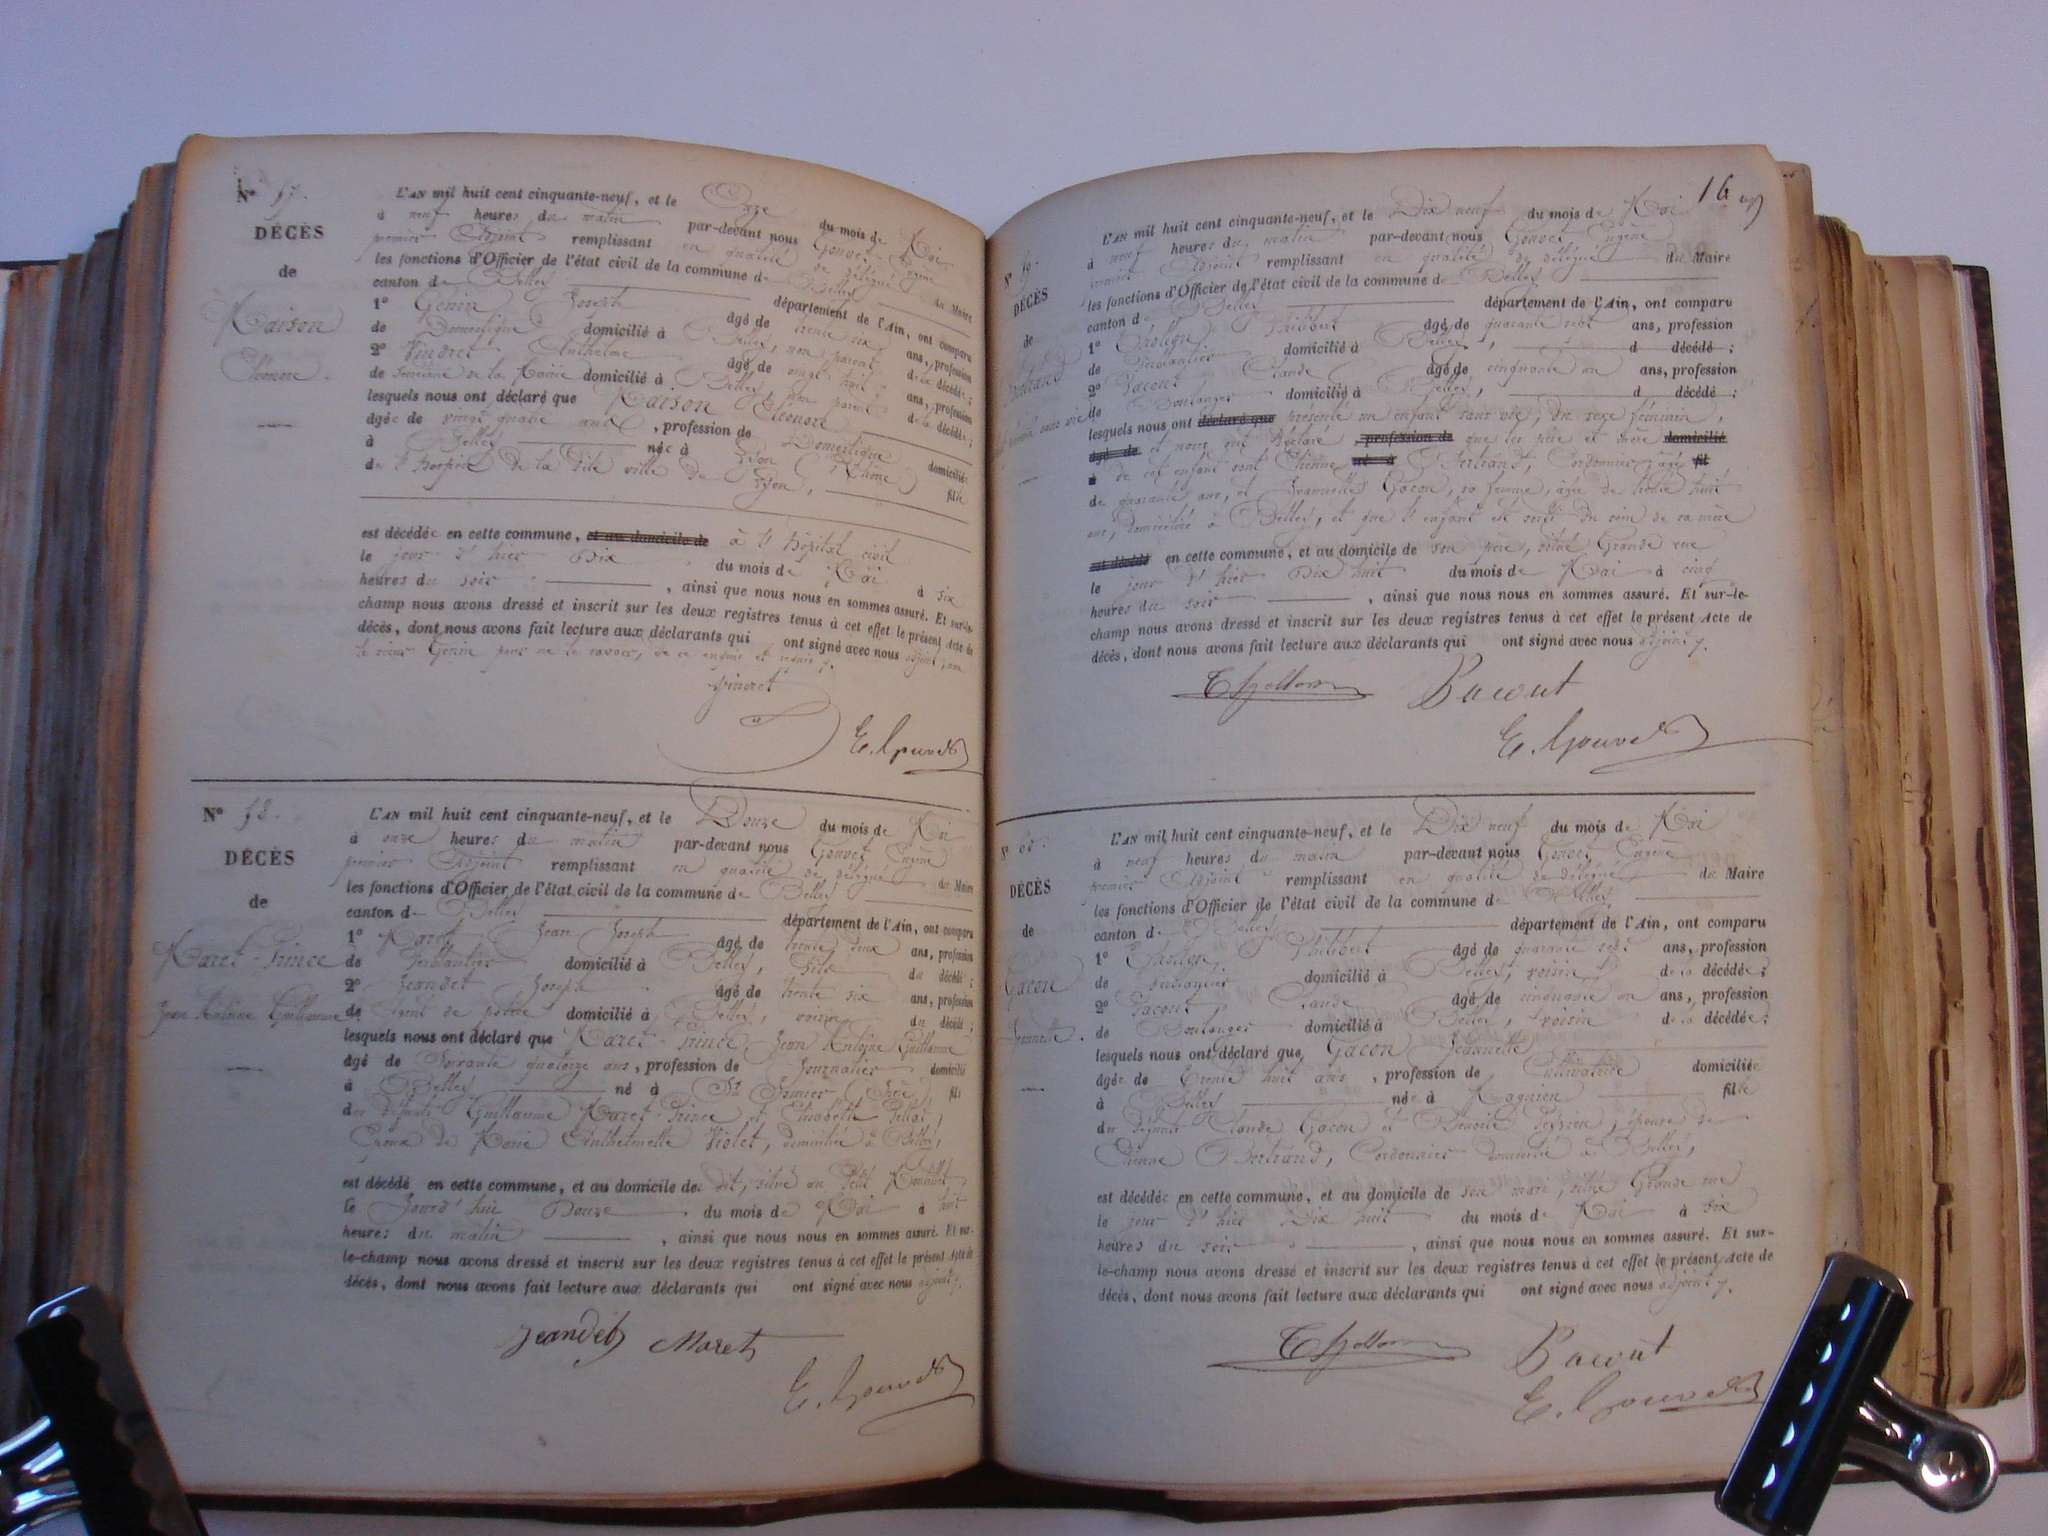 N° 57.
DÉCÈS
de
Maison
Eléonore.
L'AN mil huit cent cinquante-neuf, et le Onze du mois de Mai
à neuf heures du matin par-devant nous Gouvet Eugène
premier Adjoint remplissant en qualité de délégué du Maire
les fonctions d'Officier de l'état civil de la commune de Belley
canton de Belley département de l'Ain, ont comparu
1° Genin Joseph âgé de trente six ans, profession
de Domestique domicilié à Belley, non parent de la décédée;
2° Vindret Anthelme âgé de vingt huit ans, profession
de Secrétaire de la Mairie domicilié à Belley, non parent de la décédée;
lesquels nous ont déclaré que Maison Eléonore
âgée de vingt quatre ans, profession de Domestique domiciliée
à Belley née à Lyon (Rhône) fille
de l'hospice de la dite ville de Lyon,
est décédée en cette commune, et au domicile de à l'hôpital civil
le jour d'hier Dix du mois de Mai à six
heures du soir, ainsi que nous nous en sommes assuré. Et sur-le-
champ nous avons dressé et inscrit sur les deux registres tenus à cet effet le présent Acte de
décès, dont nous avons fait lecture aux déclarants qui ont signé avec nous adjoint, non
le sieur Genin pour ne le savoir, de ce enquis et requis
Vindret
E. Gouvet
N° 58.
DÉCÈS
de
Maret-Prince
Jean Antoine Guillaume
L'AN mil huit cent cinquante-neuf, et le Douze du mois de Mai
à onze heures du matin par-devant nous Gouvet Eugène
premier Adjoint remplissant en qualité de délégué du Maire
les fonctions d'Officier de l'état civil de la commune de Belley
canton de Belley département de l'Ain, ont comparu
1° Maret Jean Joseph âgé de trente deux ans, profession
de Ferblantier domicilié à Belley, fils du décédé;
2° Jeandet Joseph âgé de trente six ans, profession
de Agent de police domicilié à Belley, voisin du décédé;
lesquels nous ont déclaré que Maret-Prince Jean Antoine Guillaume
âgé de Soixante quatorze ans, profession de Journalier domicilié
à Belley né à St fils
des défunts Guillaume Maret-Prince et Elisabeth
Epoux de Marie Anthelmette Violet, domiciliée à Belley,
est décédé en cette commune, et au domicile de dit, situé au Petit
le Jourd'hui Douze du mois de Mai à huit
heures du matin, ainsi que nous nous en sommes assuré. Et sur-
le-champ nous avons dressé et inscrit sur les deux registres tenus à cet effet le présent Acte de
décès, dont nous avons fait lecture aux déclarants qui ont signé avec nous adjoint
Jeandet Maret
E. Gouvet
16
N° 59.
DÉCÈS
de
Bertrand
féminin sans vie
L'AN mil huit cent cinquante-neuf, et le Dix neuf du mois de Mai
à neuf heures du matin par-devant nous Gouvet Eugène
premier Adjoint remplissant en qualité de délégué du Maire
les fonctions d'Officier de l'état civil de la commune de Belley
canton de Belley département de l'Ain, ont comparu
1° Philibert âgé de quarante sept ans, profession
de domicilié à Belley, d décédé;
2° Bacout Claude âgé de cinquante un ans, profession
de Boulanger domicilié à Belley, d décédé;
lesquels nous ont déclaré que présenté un enfant sans vie, du sexe féminin
âgé de et nous ont déclaré profession de que les père et mère domicilié
à de cet enfant sont Etienne né à Bertrand, Cordonnier, âgé fil
de quarante ans, et Jeannette Gacon, sa femme, âgée de trente huit
ans, domiciliés à Belley, et que l'enfant est sorti du sein de sa mère
est décédé en cette commune, et au domicile de son père, situé Grande rue
le jour d'hier Dix huit du mois de Mai à cinq
heures du soir, ainsi que nous nous en sommes assuré. Et sur-le-
champ nous avons dressé et inscrit sur les deux registres tenus à cet effet le présent Acte de
décès, dont nous avons fait lecture aux déclarants qui ont signé avec nous adjoint
Bacout
E. Gouvet
N° 60.
DÉCÈS
de
Gacon
Jeannette.
L'AN mil huit cent cinquante-neuf, et le Dix neuf du mois de Mai
à neuf heures du matin par-devant nous Gouvet Eugène
premier Adjoint remplissant en qualité de délégué du Maire
les fonctions d'Officier de l'état civil de la commune de Belley
canton de Belley département de l'Ain, ont comparu
1° Philibert âgé de quarante sept ans, profession
de domicilié à Belley, voisin de la décédée;
2° Bacout Claude âgé de cinquante un ans, profession
de Boulanger domicilié à Belley, voisin de la décédée;
lesquels nous ont déclaré que Gacon Jeannette
âgée de Trente huit ans, profession de Cultivatrice domiciliée
à Belley née à Magnieu fille
du défunt Claude Gacon et Benoite Peysson, épouse de
Etienne Bertrand, Cordonnier domicilié à Belley,
est décédée en cette commune, et au domicile de son mari, situé Grande rue
le jour d'hier Dix huit du mois de Mai à six
heures du soir, ainsi que nous nous en sommes assuré. Et sur-
le-champ nous avons dressé et inscrit sur les deux registres tenus à cet effet le présent Acte de
décès, dont nous avons fait lecture aux déclarants qui ont signé avec nous adjoint
Bacout
E. Gouvet